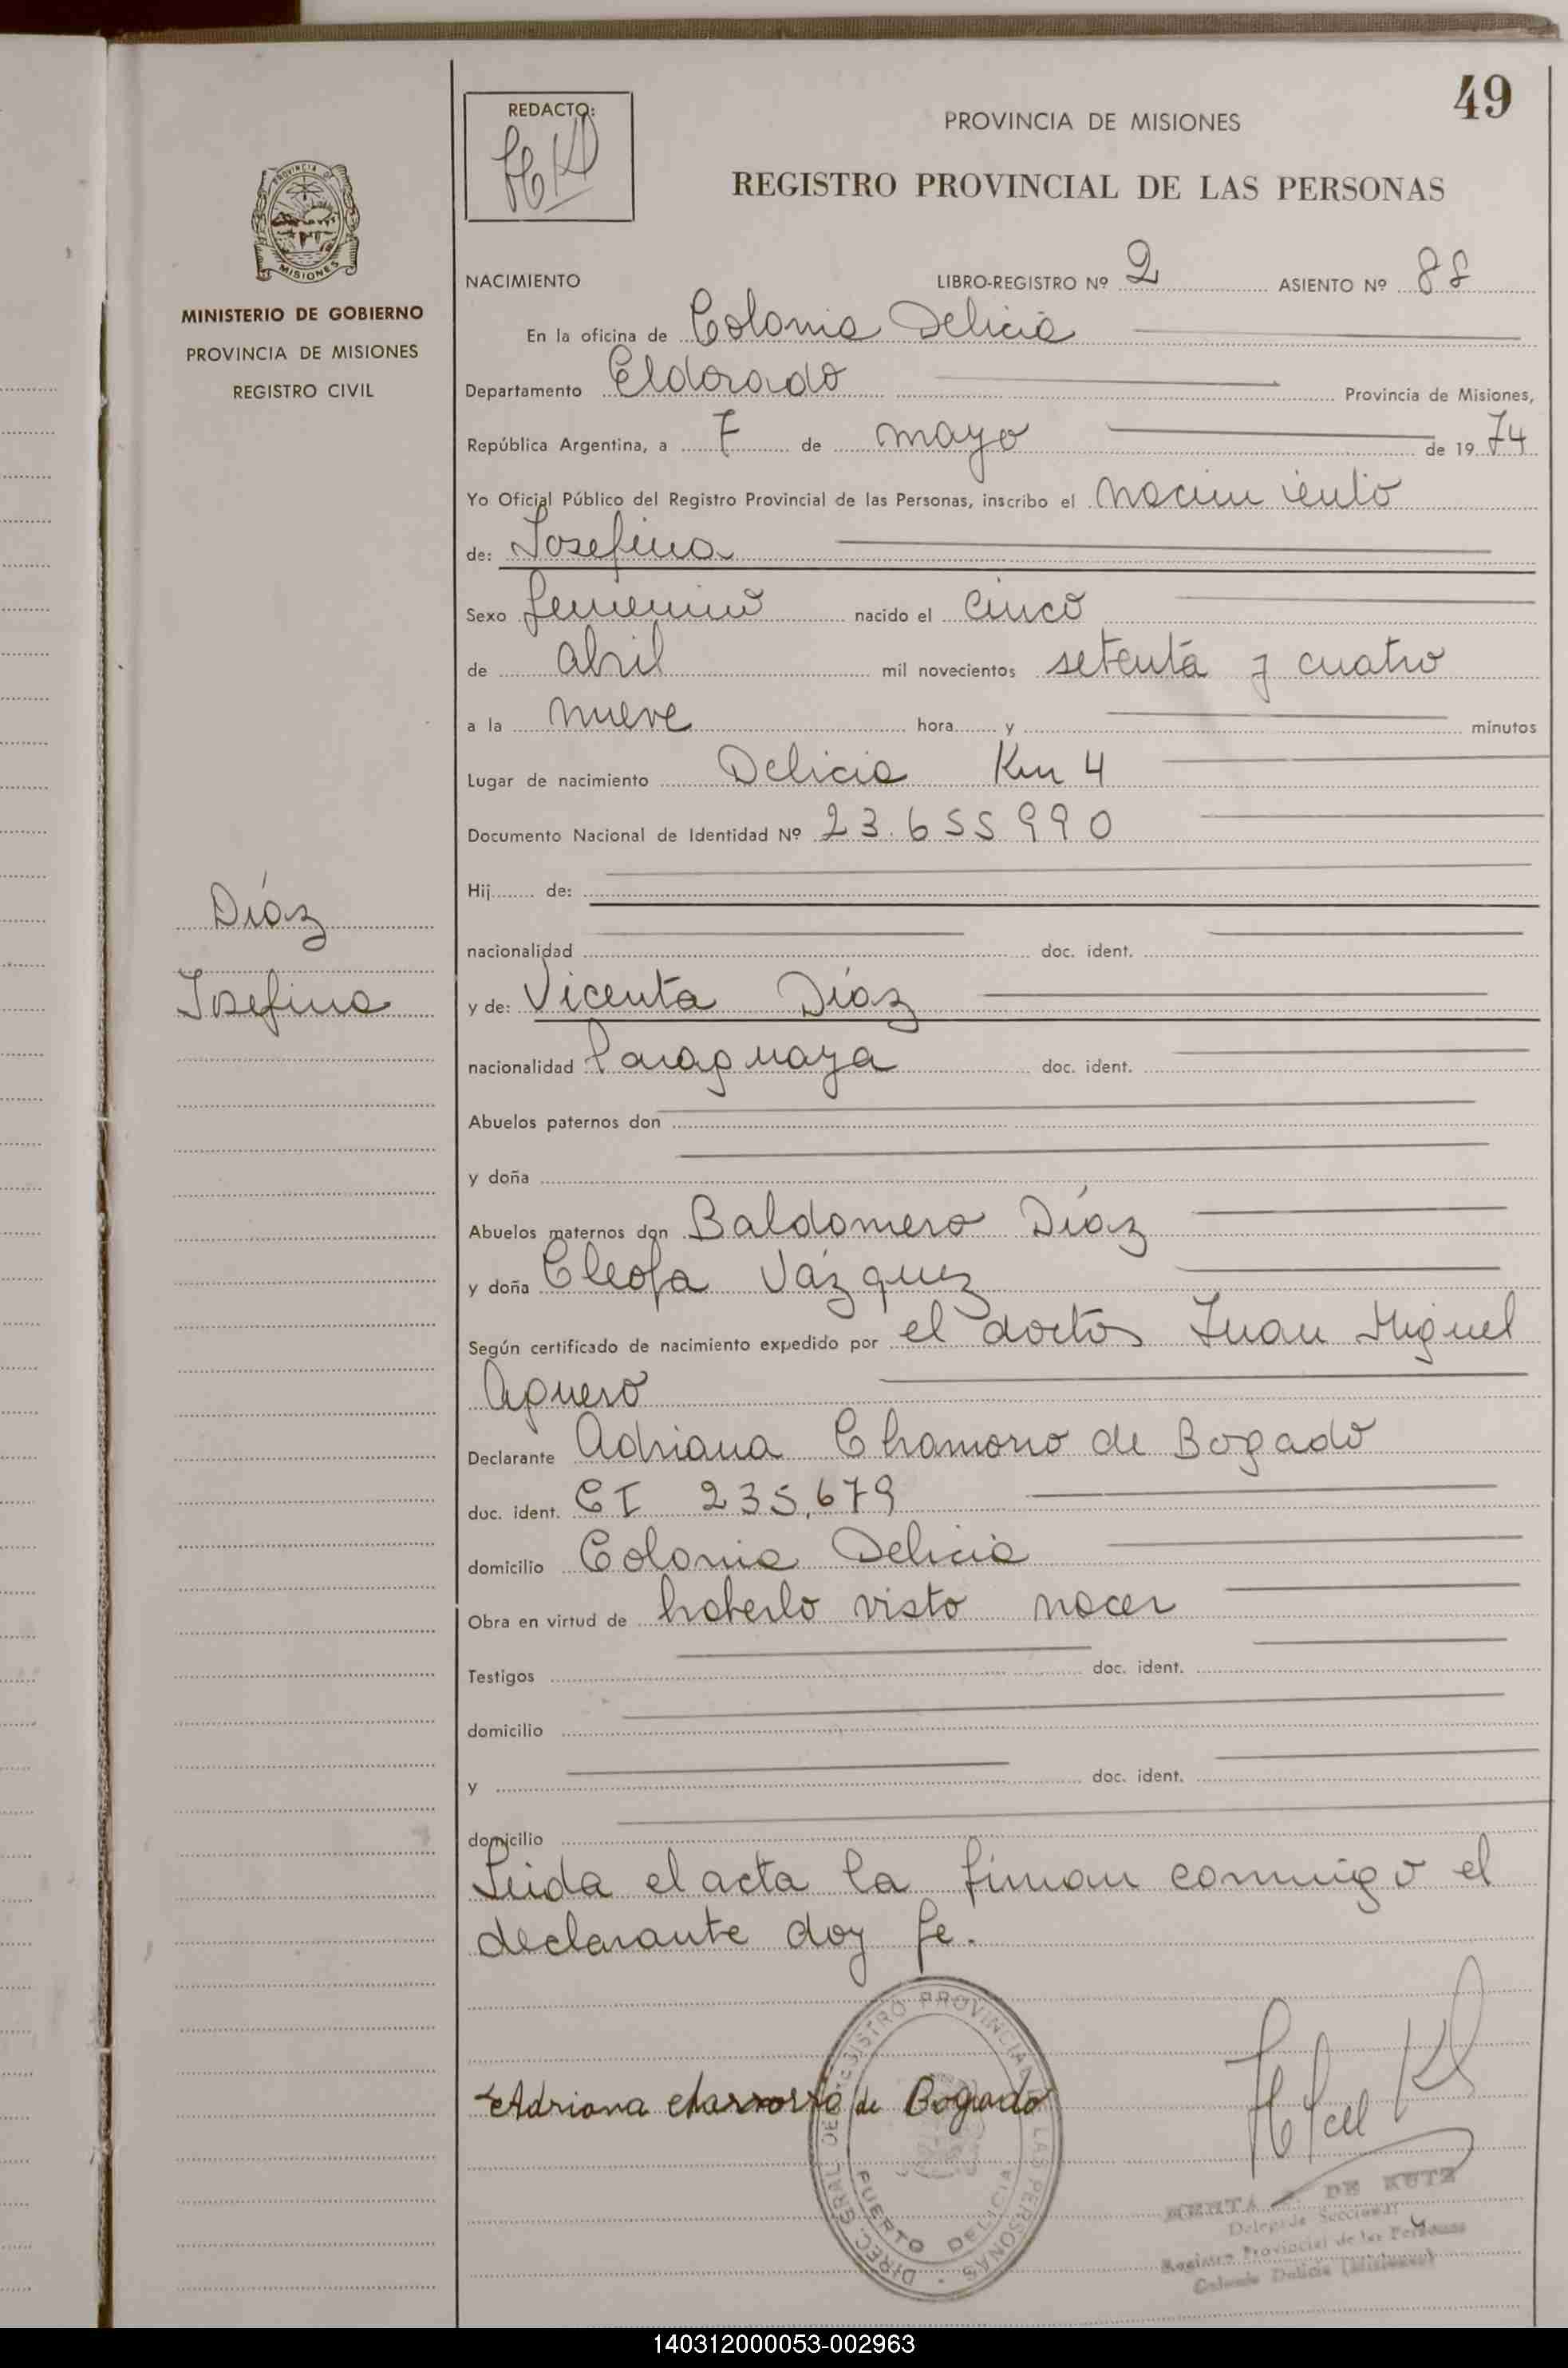 49
REDACTO:
PROVINCIA DE MISIONES
REGISTRO PROVINCIAL DE LAS PERSONAS
PROVINCIA DE
MISIONES
MINISTERIO DE GOBIERNO
PROVINCIA DE MISIONES
REGISTRO CIVIL
NACIMIENTO LIBRO-REGISTRO Nº 2 ASIENTO Nº 88
En la oficina de Colonia Delicia
Departamento Eldorado Provincia de Misiones,
República Argentina, a 7 de mayo de 1974
Yo Oficial Público del Registro Provincial de las Personas, inscribo el nacimiento
de: Josefina
Sexo femenino nacido el cinco
de abril mil novecientos setenta y cuatro
a la nueve hora y minutos
Lugar de nacimiento Delicia Km 4
Documento Nacional de Identidad Nº 23.655990
Hij de:
nacionalidad doc. ident.
Díaz
Josefina
y de: Vicenta Díaz
nacionalidad Paraguaya doc. ident.
Abuelos paternos don
y doña
Abuelos maternos don Baldomero Díaz
y doña Cleofa Vázquez
Según certificado de nacimiento expedido por el doctor Juan Miguel
Aguero
Declarante Adriana Chamorro de Bogado
doc. ident. CI 235.679
domicilio Colonia Delicia
Obra en virtud de haberlo visto nacer
Testigos doc. ident.
domicilio
y doc. ident.
domicilio
Leida el acta la firman conmigo el
declarante doy fe.
Adriana de Bogado
DIREC. GRAL. DE REGISTRO PROVINCIAL DE LAS PERSONAS
PUERTO DELICIA
DE KUTZ
Delegada Seccional
Registro Provincial de las Personas
Colonia Delicia (Misiones)
140312000053-002963